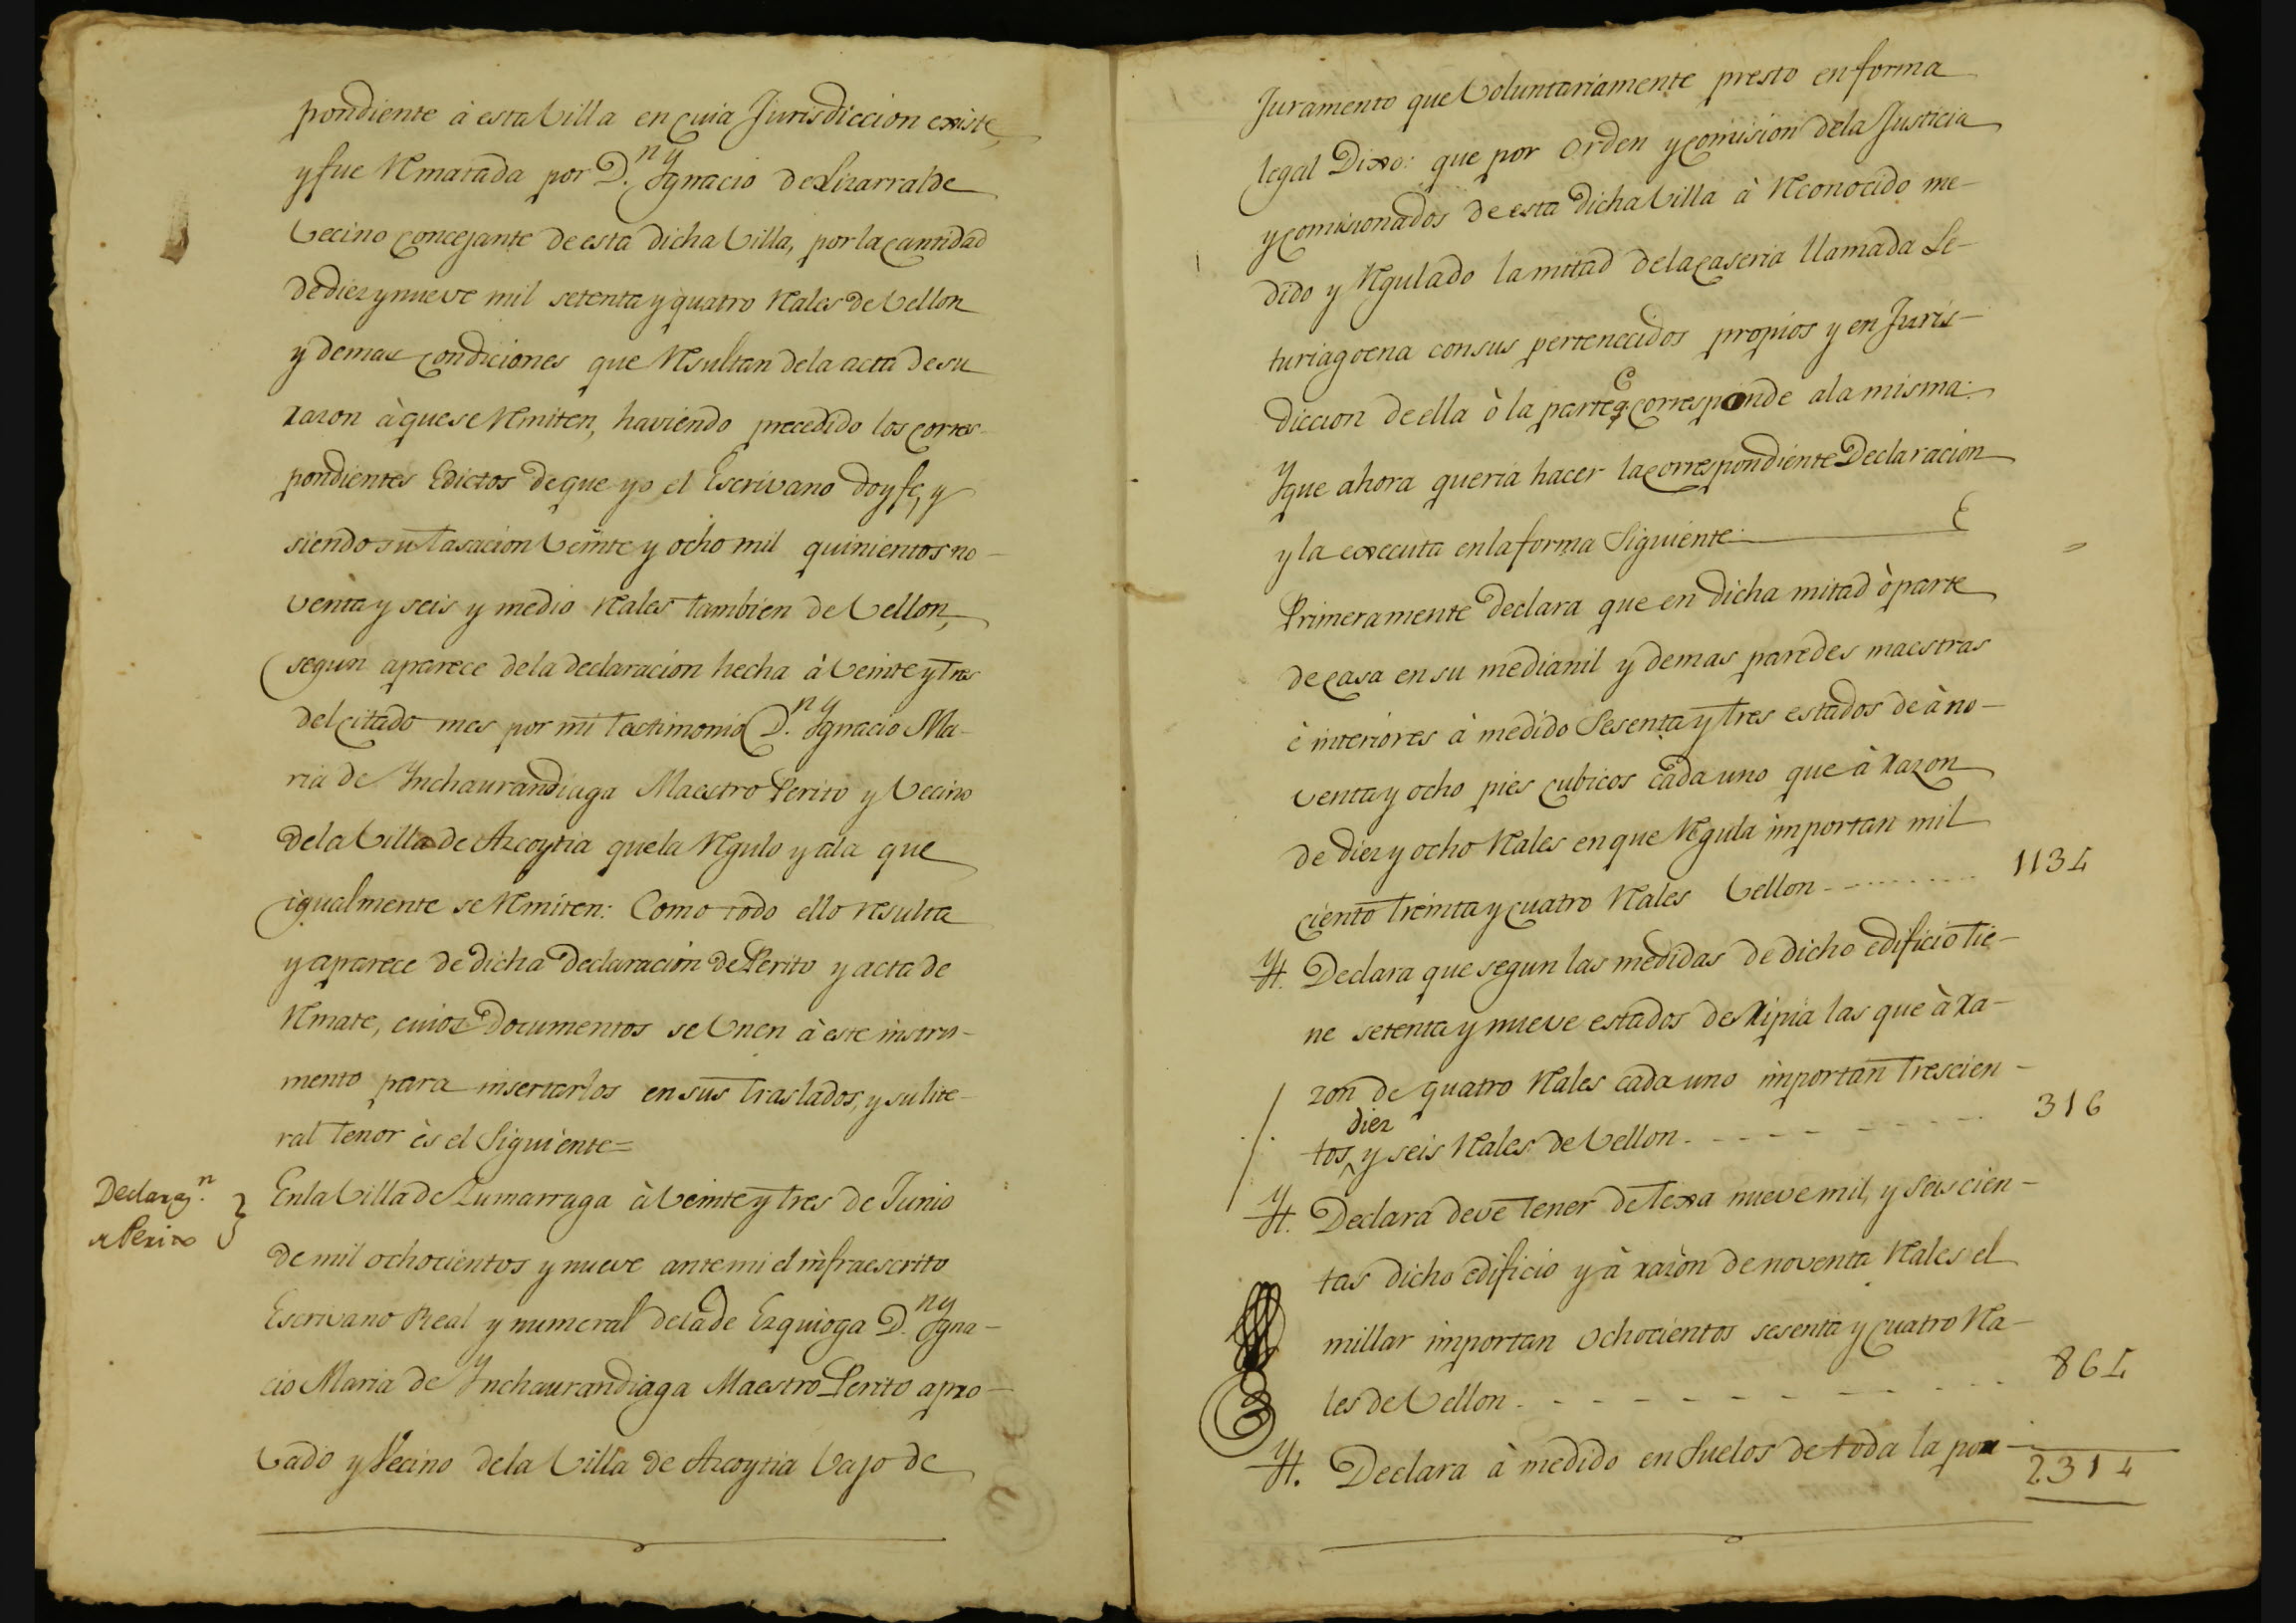 pondiente á esta Villa en cuia Jurisdiccion existe,
y fue Rematada por D.n Ygnacio de Lizarralde
Vecino Concejante de esta dicha Villa, por la cantidad
de diez y nueve mil setenta y quatro Reales de Vellon
y demas condiciones que Resultan de la acta de su
razon à que se Remiten, haviendo precedido los corres-
pondientes Edictos de que yo el Escrivano doy fe, y
siendo su tasacion Veinte y ocho mil quinientos no-
venta y seis y medio Reales tambien de Vellon,
segun aparece de la declaracion hecha à Veinte y tres
del citado mes por mi testimonio D.n Ygnacio Ma-
ria de Ynchaurandiaga Maestro Perito y Vecino
de la Villa de Azcoytia que la Regulo y a la que
igualmente se Remiten: Como todo ello resulta
y aparece de dicha Declaracion de Perito y acta de
Remate, cuios Documentos se Unen à este instru-
mento para insertarlos en sus traslados, y su lite-
ral tenor ès el Siguiente=
Declarac.n
de Perito
En la Villa de Zumarraga à Veinte y tres de Junio
de mil ochocientos y nueve ante mi el infraescrito
Escrivano Real y numeral de la de Ezquioga D.n Ygna-
cio Maria de Ynchaurandiaga Maestro Perito apro-
vado y Vecino de la Villa de Azcoytia Vajo de
Juramento que Voluntariamente presto en forma
legal Dixo: que por orden y comision de la Justicia
y comisionados de esta dicha Villa à Reconocido me-
dido y Regulado la mitad de la caseria llamada Le-
turiagoena con sus pertenecidos propios y en Juris-
diccion de ella ò la parte q.e corresponde a la misma:
Y que ahora queria hacer la correspondiente Declaracion
y la executa en la forma Siguiente:
Primeramente declara que en dicha mitad ò parte
de casa en su medianil y demas paredes maestras
è interiores à medido Sesenta y tres estados de à no-
venta y ocho pies cubicos cada uno que à razon
de diez y ocho Reales en que Regula importan mil
ciento treinta y cuatro Reales Vellon 1134
Yt. Declara que segun las medidas de dicho edificio tie-
ne setenta y nueve estados de Ripia las que à ra-
zon de quatro Reales cada uno importan trescien-
diez
tos y seis Reales de Vellon 316
Yt. Declara deve tener de texa nueve mil, y seiscien-
tas dicho edificio y à razon de noventa Reales el
millar importan ochocientos sesenta y cuatro Rea-
les de Vellon 864
Yt. Declara à medido en Suelos de toda la por-
2314